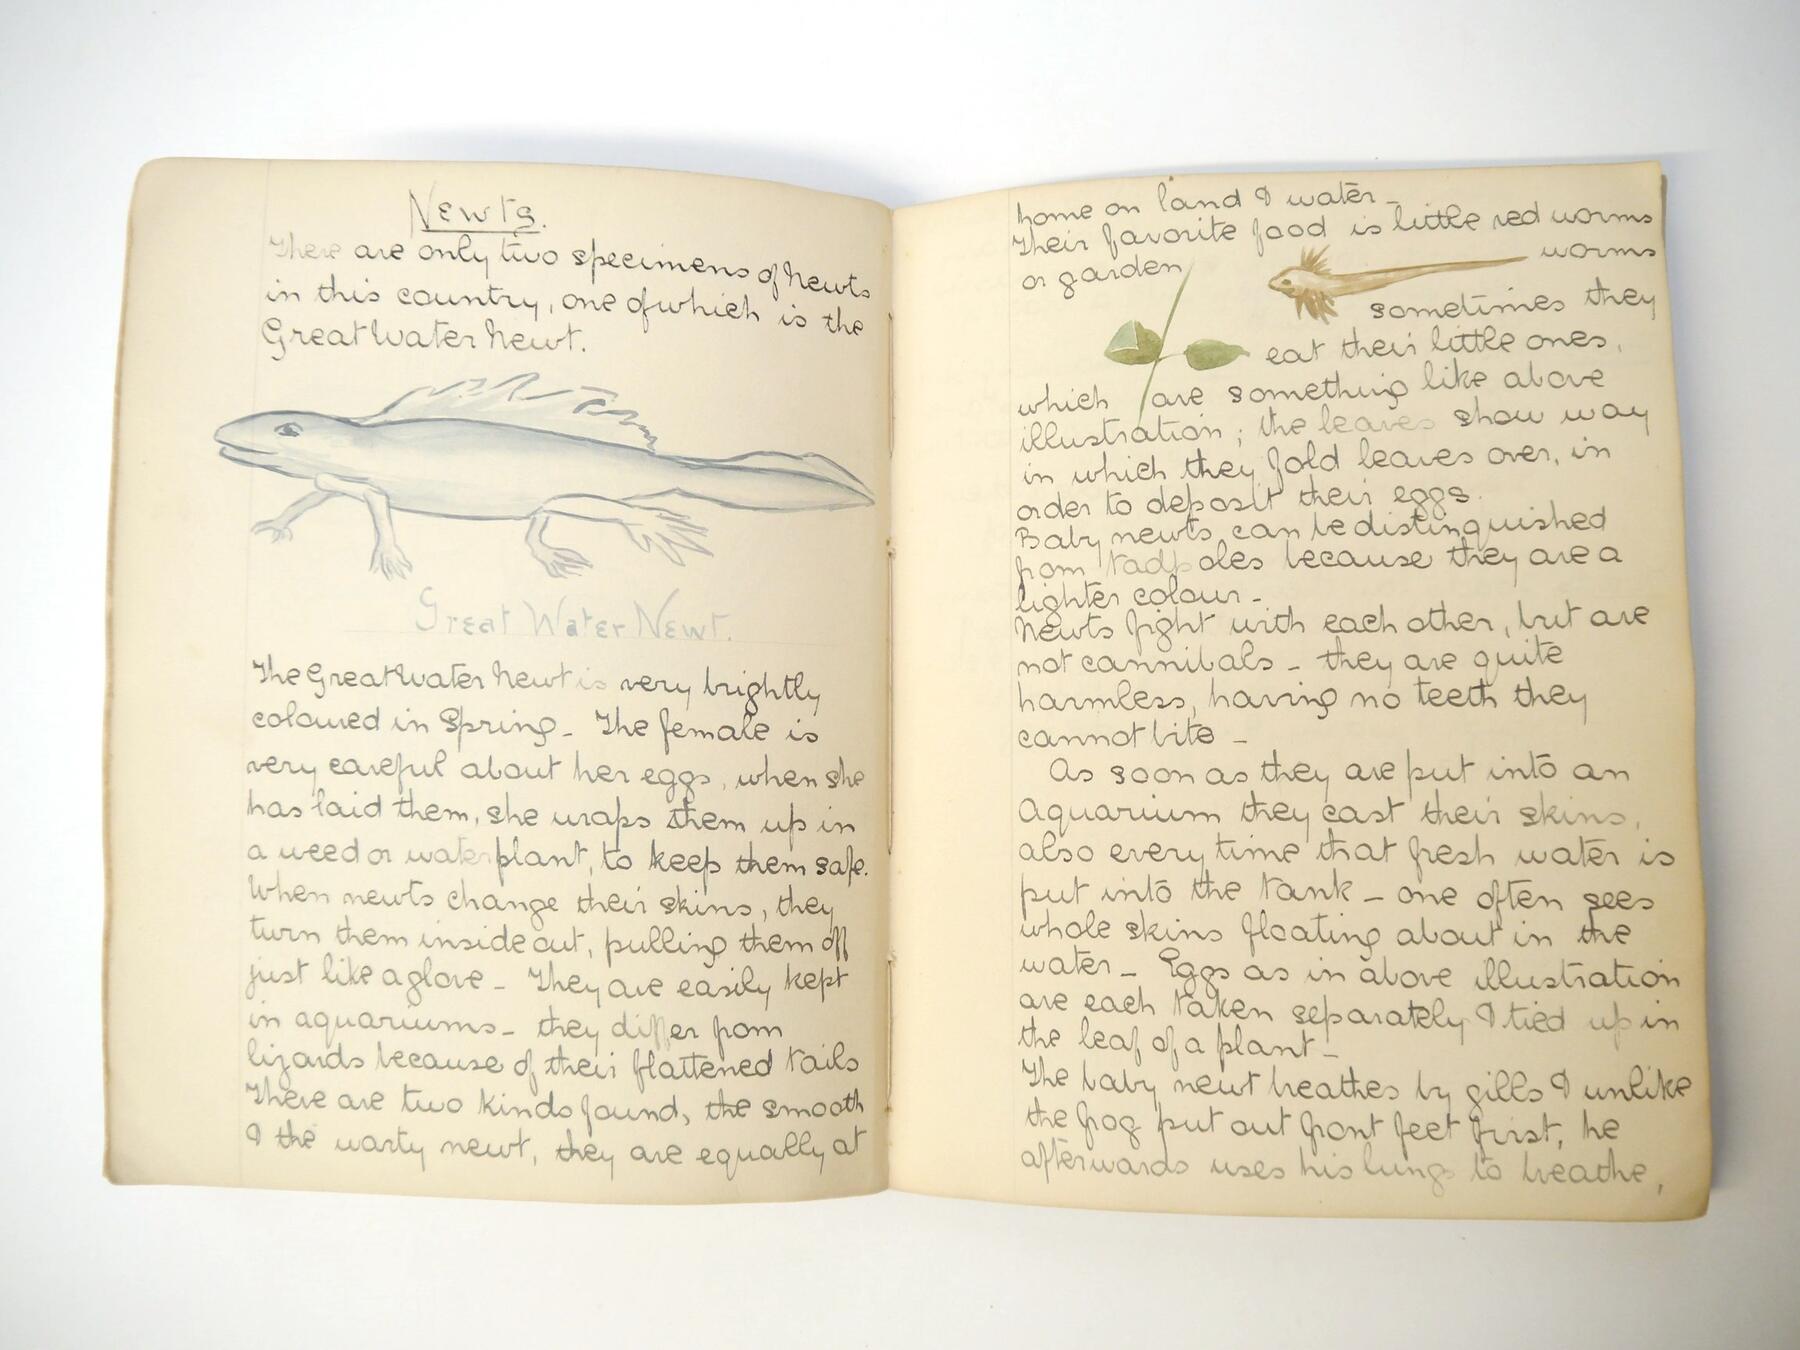 Newts.
There are only two specimens of Newts
in this country, one of which is the
Great Water Newt.
Great Water Newt.
The Great Water Newt is very brightly
coloured in Spring - The female is
very careful about her eggs, when she
has laid them, she wraps them up in
a weed or water plant, to keep them safe.
When newts change their skins, they
turn them inside out, pulling them off
just like a glove - They are easily kept
in aquariums - they differ from
lizards because of their flattened tails
There are two kinds found, the smooth
& the warty newt, they are equally at
home on land & water -
Their favorite food is little red worms
or garden worms
sometimes they
eat their little ones,
which are something like above
illustration; the leaves show way
in which they fold leaves over, in
order to deposit their eggs.
Baby newts can be distinguished
from tadpoles because they are a
lighter colour -
Newts fight with each other, but are
not cannibals - they are quite
harmless, having no teeth they
cannot bite -
As soon as they are put into an
Aquarium they cast their skins,
also every time that fresh water is
put into the tank - one often sees
whole skins floating about in the
water - Eggs as in above illustration
are each taken separately & tied up in
the leaf of a plant -
The baby newt breathes by gills & unlike
the frog put out front feet first, he
afterwards uses his lungs to breathe,